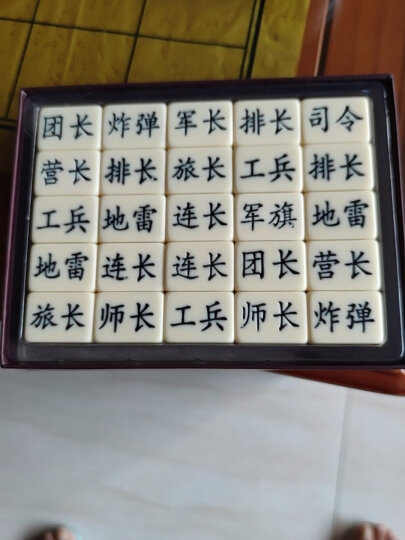 团长 炸弹 军长 排长 司令
营长 排长 旅长 工兵 排长
工兵 地雷 连长 军旗 地雷
地雷 连长 连长 团长 营长
旅长 师长 工兵 师长 炸弹